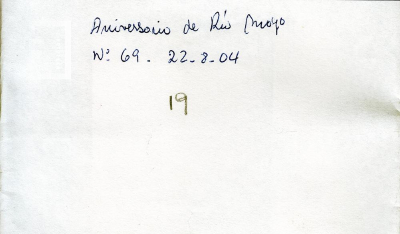 Aniversario de Río Mayo
Nº 69 - 22-8-04
19